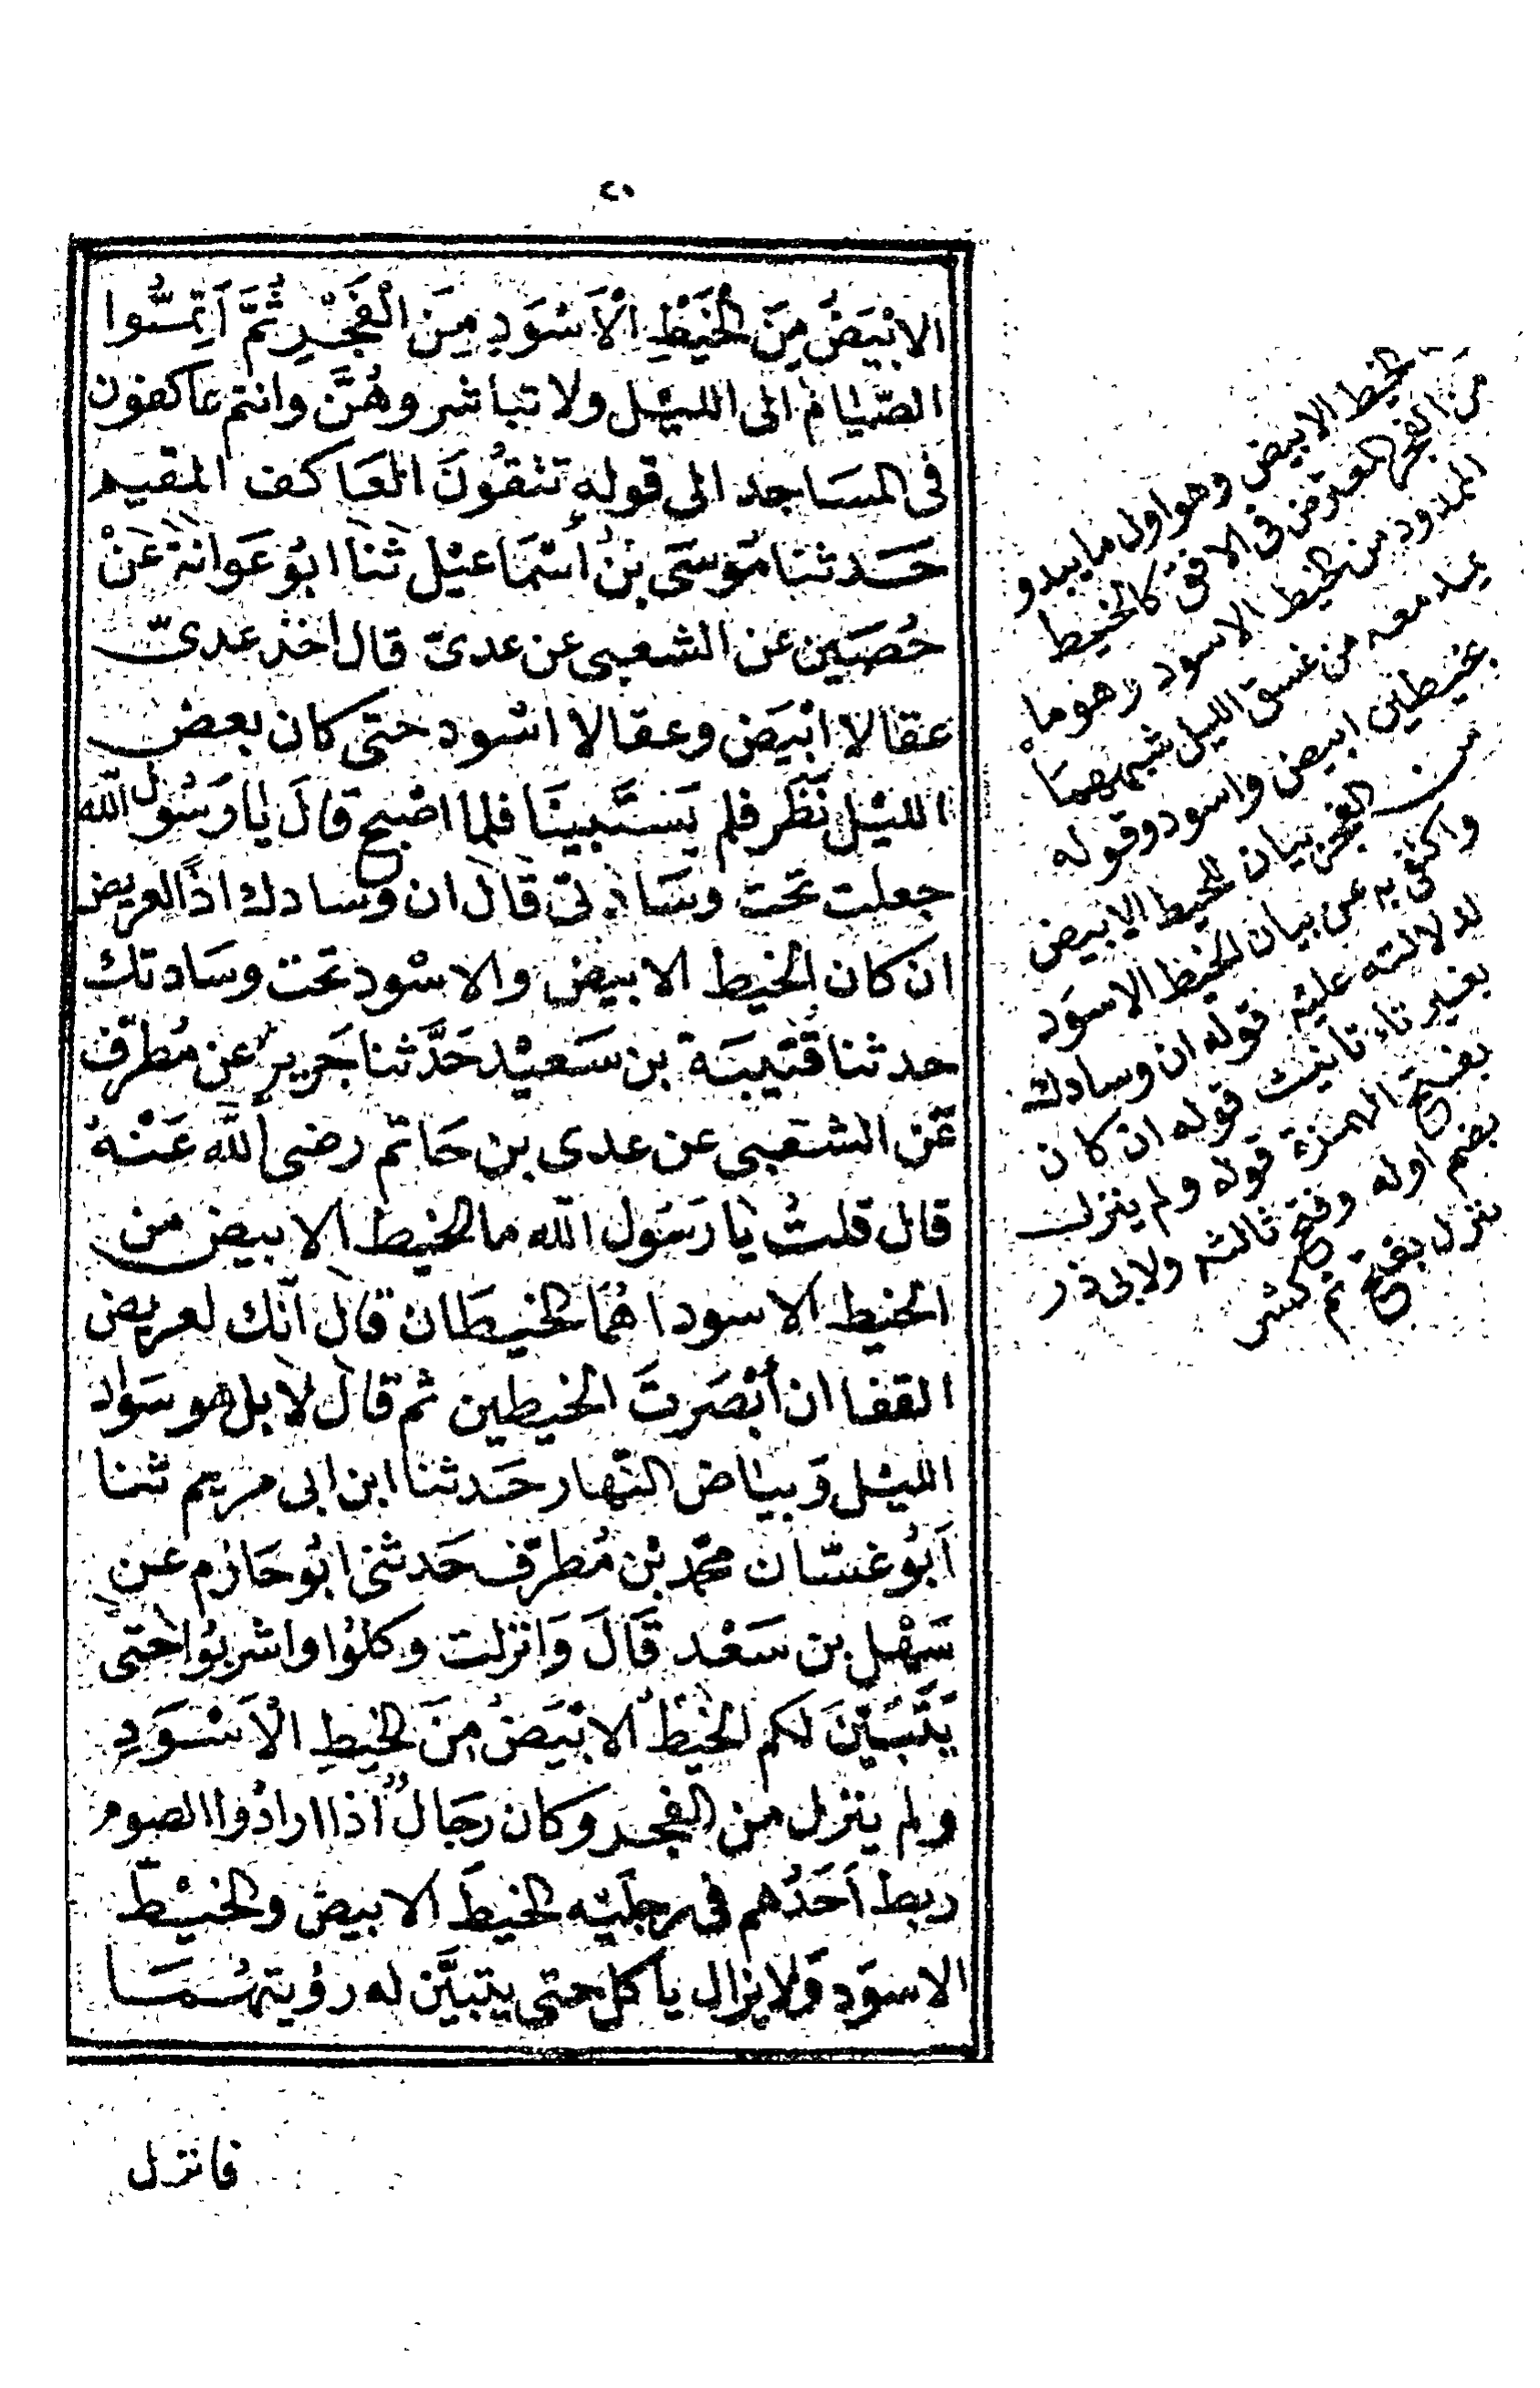 ٢٠
الابْيَضُ مِنَ الْخَيْطِ الْأَسْوَدِ مِنَ الْفَجْرِ ثُمَّ أَتِمُّوا
الصّيامَ الى الليْل ولا تباشروهُنَّ وانتم عاكفون
فى المسَاجد الى قوله تتقُونَ العَاكف المقيم
حَدثنا مُوسَى بنُ أسْمَاعيْل ثنا ابُو عَوانة عَنْ
حُصَين عن الشعبى عن عدىّ قال اخذ عدىّ
عقالا ابْيَض وعقالا اسْود حتى كان بعض
الليْل نَظَر فلم يَسْتَبينَا فلما اصْبح قالَ يا رَسُول الله
جعلت تحت وسَادتى قال ان وسادك اذًا لعريض
ان كان الخيط الابيض والاسْود تحت وسَادتك
حدثنا قُتَيبَة بن سَعيْد حَدَّثنا جَرير عن مُطرّف
عَن الشعبى عن عدى بن حَاتم رضى الله عَنْهُ
قال قلتُ يا رَسُول الله ما الخيط الابيض من
الخيط الاسود اهُما الخيطَان قال انّك لعريض
القفا ان أبْصَرتَ الخيطين ثم قال لا بل هو سَواد
الليْل وَبياض النّهار حَدثنا ابن ابى مريم ثنا
أبُو غسّان محمّد بْن مُطرّف حَدثنى ابُو حَازم عن
سَهْل بن سَعْد قَالَ وَانزلت وكلوُا واشربُوا حتىّ
يَتَبَيّنَ لكم الخيْطُ الابْيَضُ مِنَ الخيطِ الْأَسْوَدِ
ولم ينزل من الفجر وكان رجَالٌ اذا ارادُوا الصوم
ربط أحَدُهم فى رجليْه الخيطَ الابيض والخيْطَ
الاسوَد ولا يزال ياكل حتى يتبيَّن له رؤيتهُمَا
فانزل
الخيط الابيض وهو اول ما يبدو
من الفجر المعترض فى الافق كالخيط
الممدود من الخيط الاسود وهو ما
يمتد معه من غسق الليل شبههما
بخيطين ابيض واسود وقوله
من الفجر بيان للخيط الابيض
واكتفى به عن بيان الخيط الاسوَد
لدلالته عليْه قوله ان وسادك
بغير تاء تانيث قوله ان كان
بفتح الهمزة قوله ولم ينزل
بضم اوله وفتح ثالثه ولابى ذر
ينزل بفتح ثم كسر